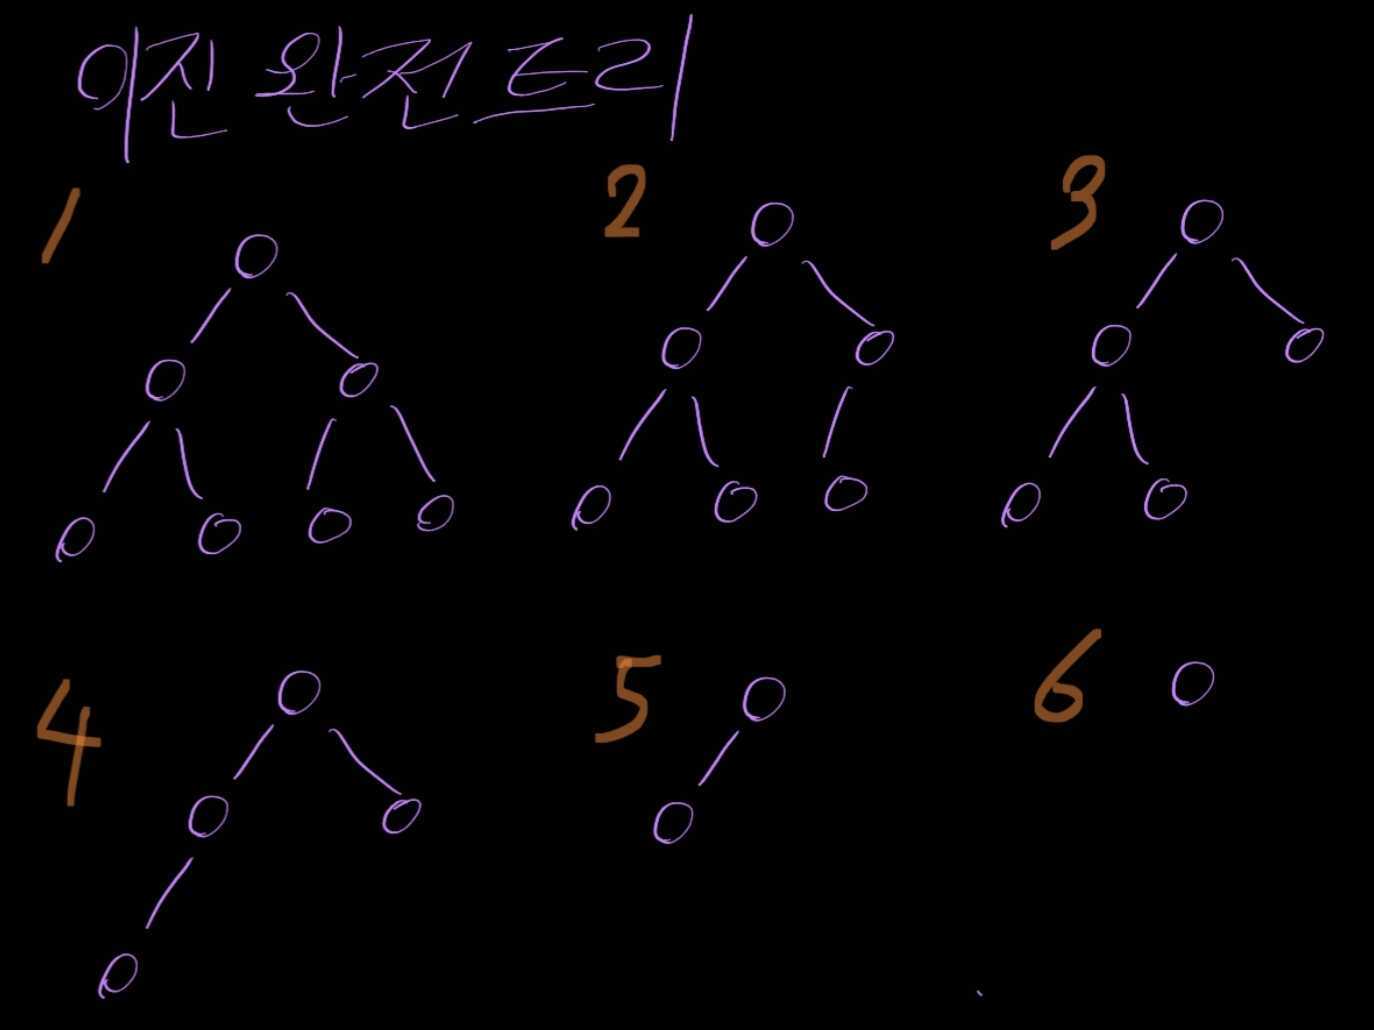 이진 완전 트리
1
2
3
4
5
6